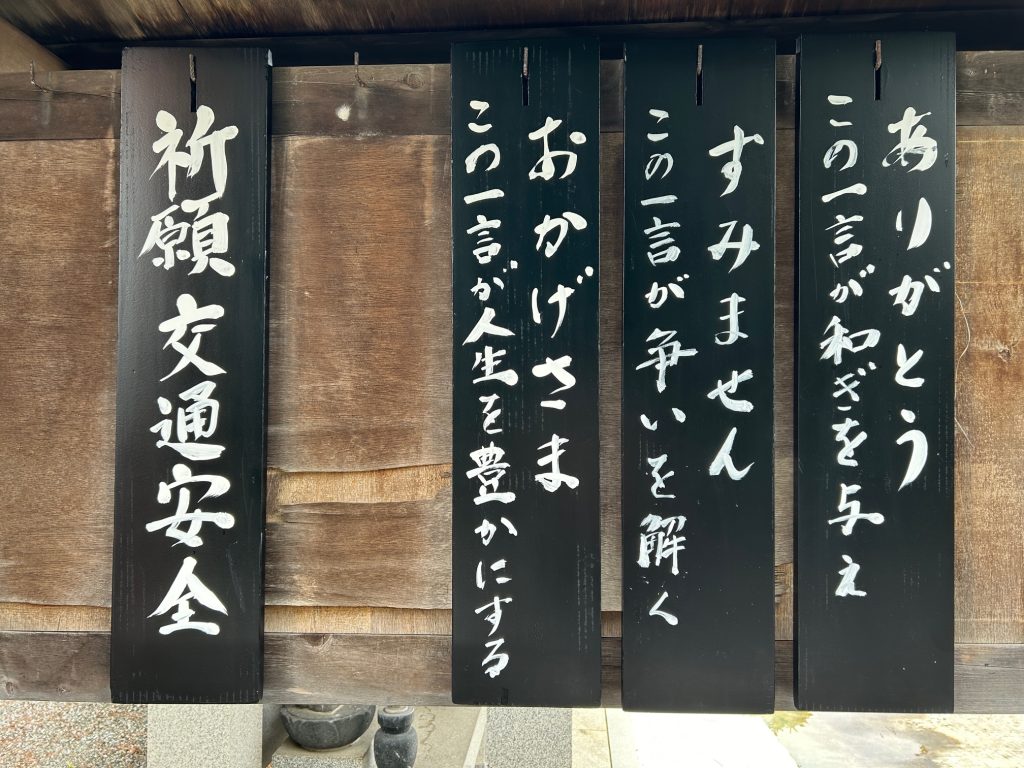 ありがとう
この一言が和ぎを与え
すみません
この一言が争いを解く
おかげさま
この一言が人生を豊かにする
祈願 交通安全